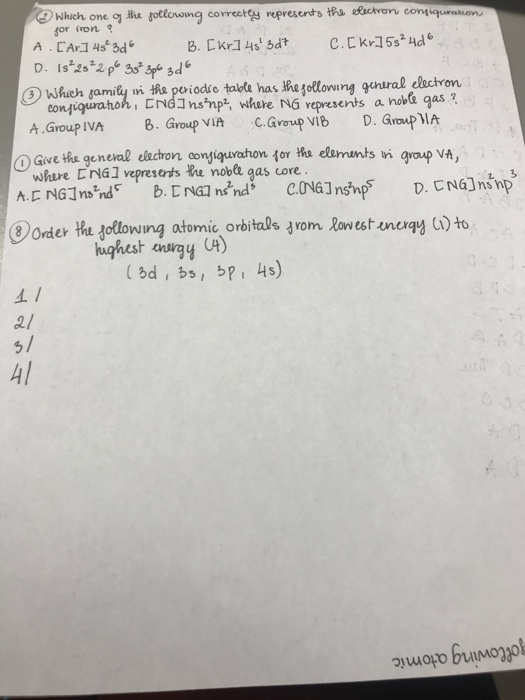 ② Which one of the following correctly represents the electron configuration
for iron ?
A. [Ar] 4s² 3d⁶ B. [Kr] 4s¹ 3d⁷ C. [Kr] 5s² 4d⁶
D. 1s² 2s² 2p⁶ 3s² 3p⁶ 3d⁶
③ Which family in the periodic table has the following general electron
configuration, [NG] ns²np², where NG represents a noble gas ?
A. Group IVA B. Group VIA C. Group VIB D. Group IIA
① Give the general electron configuration for the elements in group VA,
where [NG] represents the noble gas core.
A. [NG] ns²nd⁵ B. [NG] ns²nd³ C. [NG] ns²np⁵ D. [NG] ns²np³
⑧ Order the following atomic orbitals from lowest energy (1) to
highest energy (4)
(3d, 3s, 3p, 4s)
1/
2/
3/
4/
following atomic